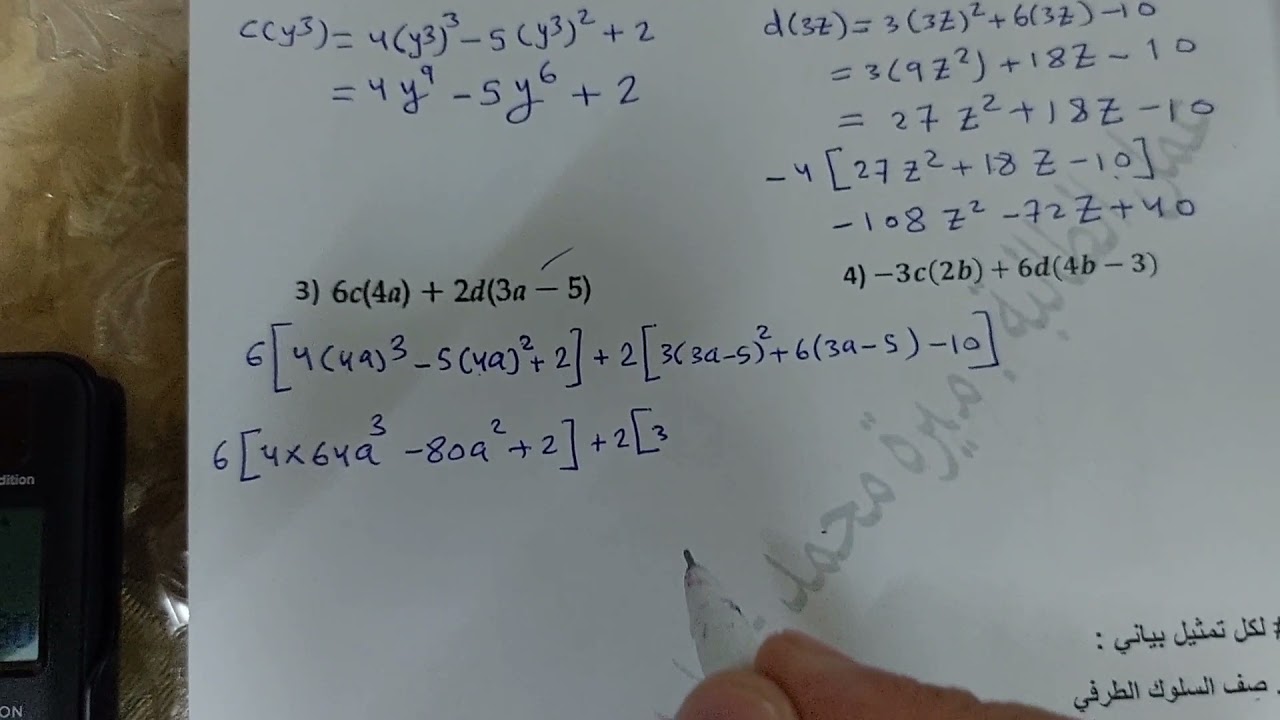 c(y³) = 4(y³)³ − 5(y³)² + 2
= 4y⁹ − 5y⁶ + 2
d(3z) = 3(3z)² + 6(3z) − 10
= 3(9z²) + 18z − 10
= 27z² + 18z − 10
−4[27z² + 18z − 10]
−108z² − 72z + 40
3) 6c(4a) + 2d(3a − 5)
6[4(4a)³ − 5(4a)² + 2] + 2[3(3a−5)² + 6(3a−5) − 10]
6[4×64a³ − 80a² + 2] + 2[3
4) −3c(2b) + 6d(4b − 3)
# لكل تمثيل بياني :
. صف السلوك الطرفي
dition
ON